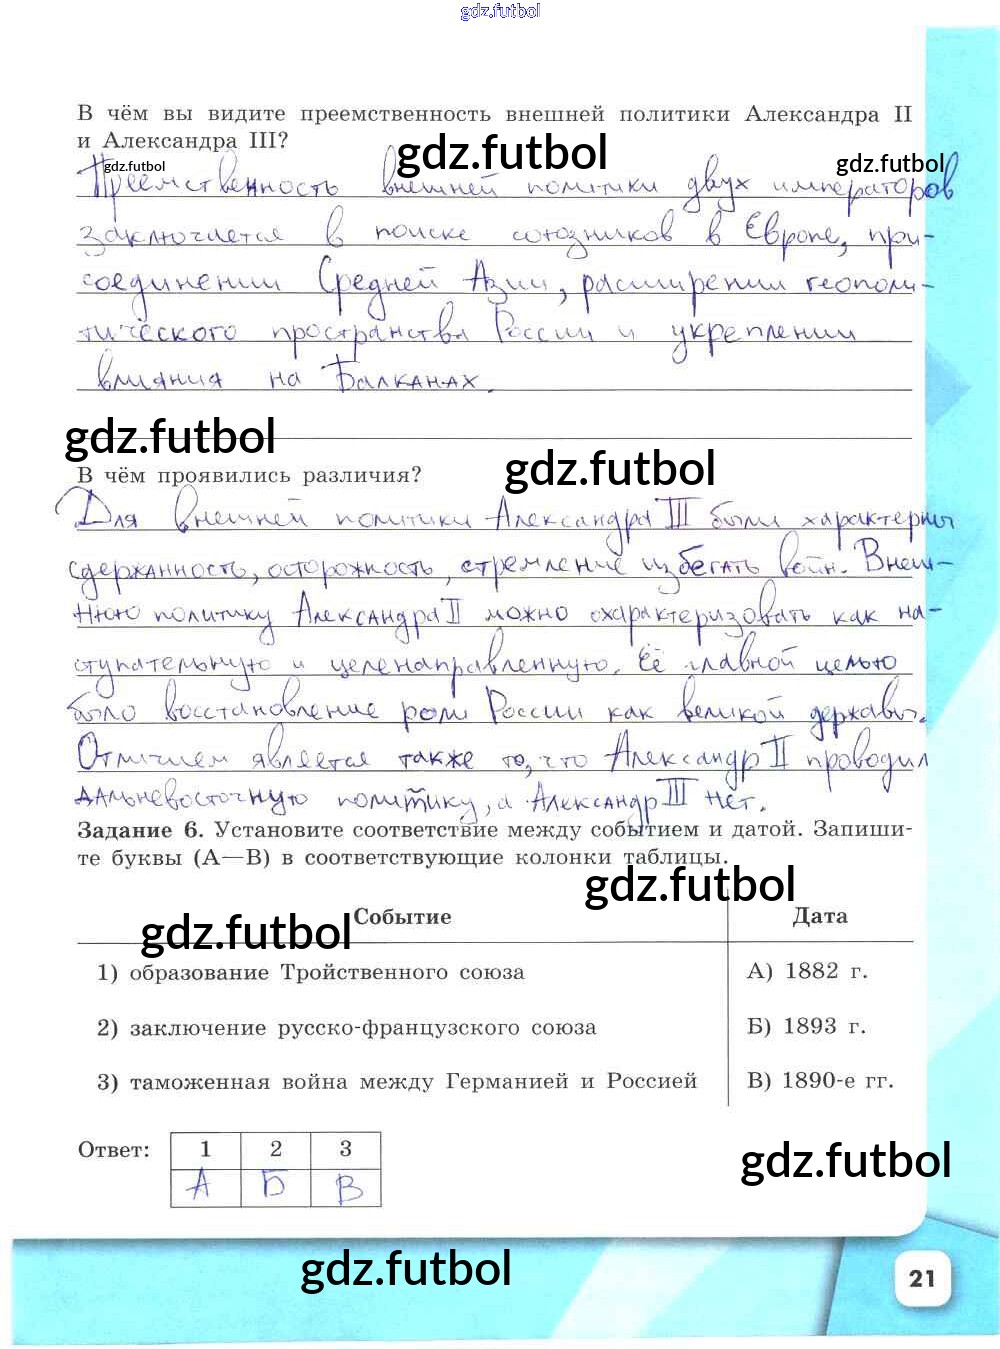 gdz.futbol
В чём вы видите преемственность внешней политики Александра II
и Александра III?
gdz.futbol
gdz.futbol
gdz.futbol
Преемственность внешней политики двух императоров
заключается в поиске союзников в Европе, при-
соединении Средней Азии, расширении геополи-
тического пространства России и укреплении
влияния на Балканах.
gdz.futbol
gdz.futbol
В чём проявились различия?
Для внешней политики Александра III были характерны
сдержанность, осторожность, стремление избегать войн. Внеш-
нюю политику Александра II можно охарактеризовать как на-
ступательную и целенаправленную. Её главной целью
было восстановление роли России как великой державы.
Отличием является также то, что Александр II проводил
дальневосточную политику, а Александр III нет.
Задание 6. Установите соответствие между событием и датой. Запиши-
те буквы (А—В) в соответствующие колонки таблицы.
gdz.futbol
Событие Дата
gdz.futbol
1) образование Тройственного союза А) 1882 г.
2) заключение русско-французского союза Б) 1893 г.
3) таможенная война между Германией и Россией В) 1890-е гг.
Ответ: 1 2 3
А Б В
gdz.futbol
gdz.futbol
21